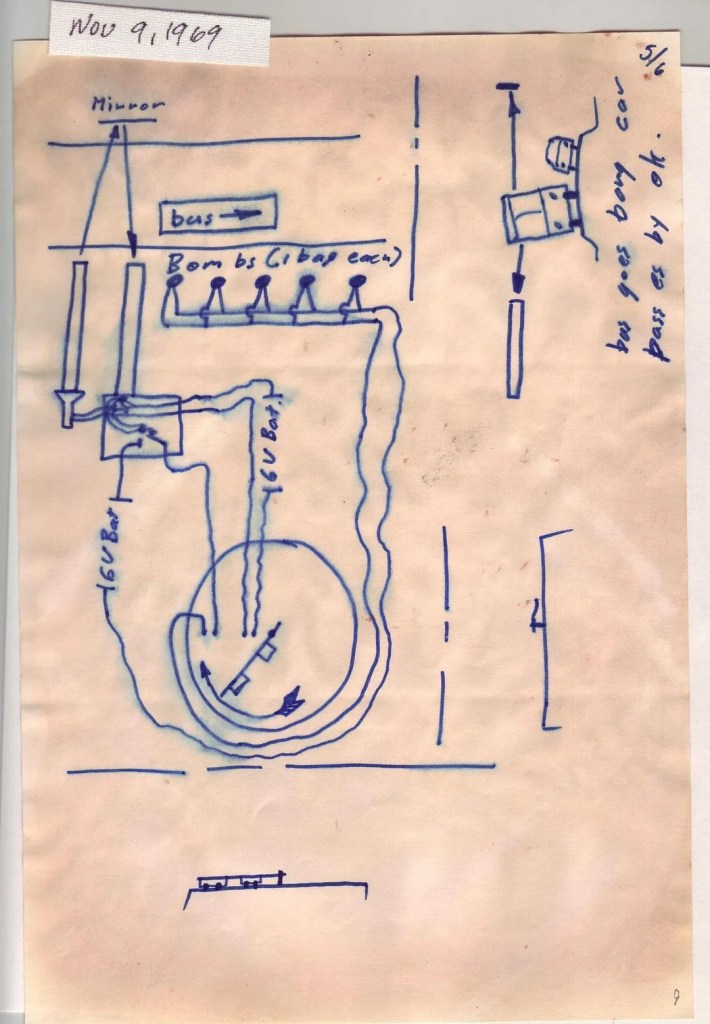 NOV 9, 1969
5/6
Mirror
bus
Bombs (1 bag each)
6V Bat
6V Bat.
bus goes bang car
pass es by ok.